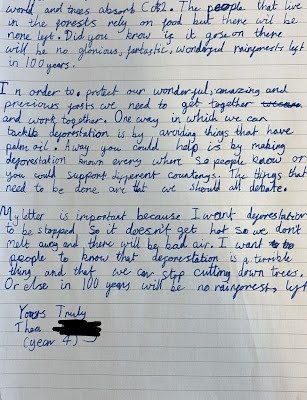 world and trees absorb Co2. The people that live
in the forests rely on food but there will be
none left. Did you know if it gose on there
will be no glorious, fantastic, wonderful rainforests left
in 100 years.
In order to protect our wonderful, amazing and
precious forsts we need to get together
and work together. One way in which we can
tackle deforestation is by avoiding things that have
palm oil. Away you could help is by making
deforestation known every where so people know or
you could support different countrys. The things that
need to be done are that we should all debate.
My letter is important because I want deforestation
to be stopped. So it doesn't get hot so we don't
melt away and there will be bad air. I want to
people to know that deforestation is a terrible
thing and that we can stop cutting down trees.
Or else in 100 years will be no rainforests left
Yours Truly
Thea
(year 4)